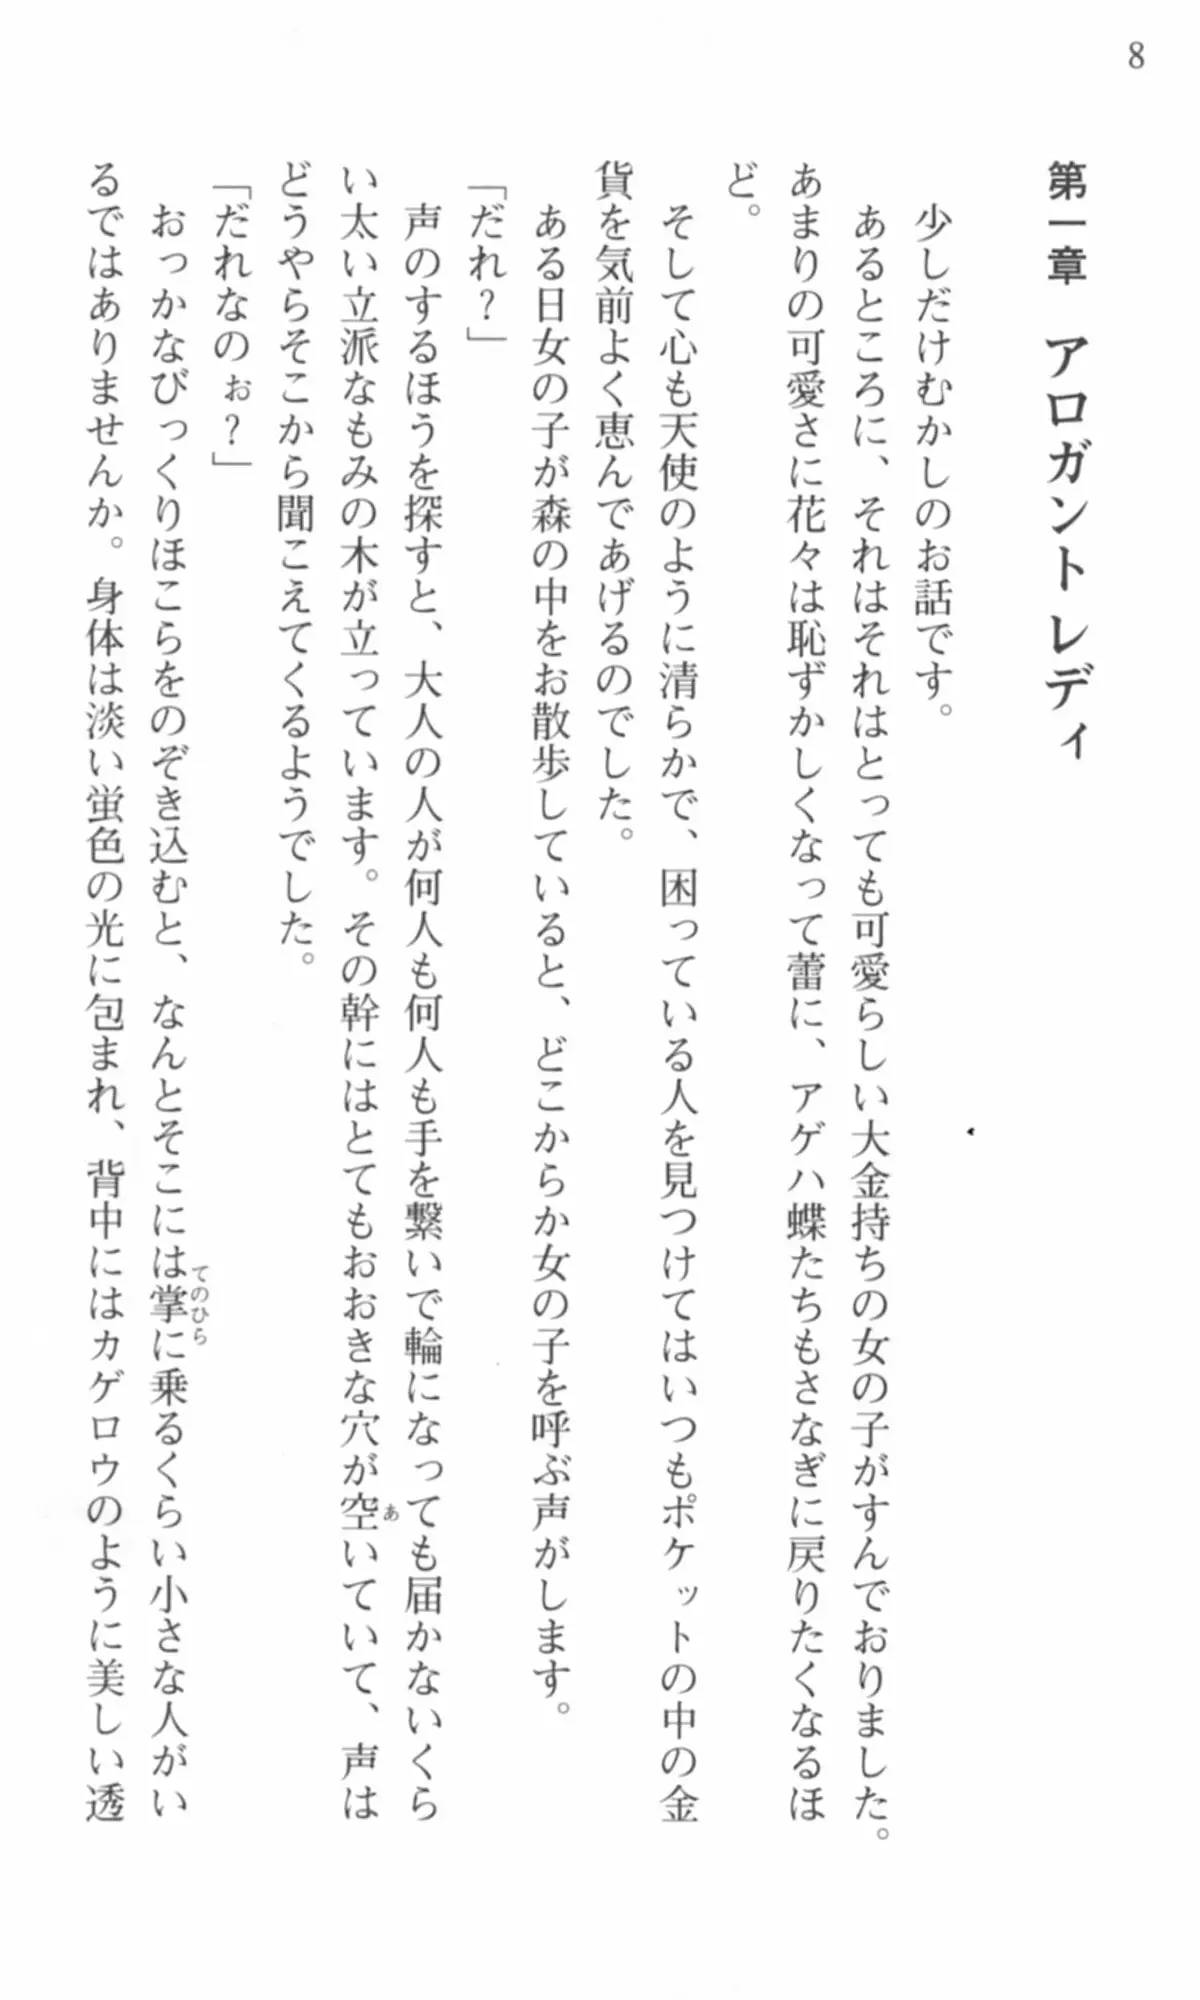 8
第一章　アロガントレディ
少しだけむかしのお話です。
あるところに、それはそれはとっても可愛らしい大金持ちの女の子がすんでおりました。
あまりの可愛さに花々は恥ずかしくなって蕾に、アゲハ蝶たちもさなぎに戻りたくなるほ
ど。
そして心も天使のように清らかで、困っている人を見つけてはいつもポケットの中の金
貨を気前よく恵んであげるのでした。
ある日女の子が森の中をお散歩していると、どこからか女の子を呼ぶ声がします。
「だれ？」
声のするほうを探すと、大人の人が何人も何人も手を繋いで輪になっても届かないくら
い太い立派なもみの木が立っています。その幹にはとてもおおきな穴が空いていて、声は
どうやらそこから聞こえてくるようでした。
「だれなのぉ？」
おっかなびっくりほこらをのぞき込むと、なんとそこには掌に乗るくらい小さな人がい
るではありませんか。身体は淡い蛍色の光に包まれ、背中にはカゲロウのように美しい透
あ
てのひら